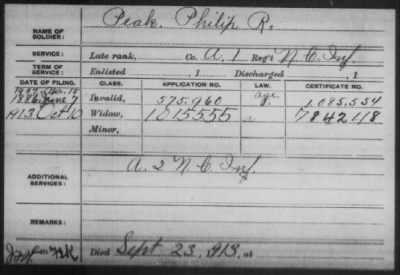 NAME OF SOLDIER: Peak. Philip R.
SERVICE: Late rank, Co. A. 1 Reg't N. C. Inf.
TERM OF SERVICE: Enlisted , 1 Discharged , 1
DATE OF FILING. CLASS. APPLICATION NO. LAW. CERTIFICATE NO.
1907 Apr. 15 age
1886 June 7 Invalid, 575.960 1.085.554
1913 Oct 10 Widow, 1015555 784248
Minor,
ADDITIONAL SERVICES: A. 2 N. C. Inf.
REMARKS:
Died Sept 23, 1913, at